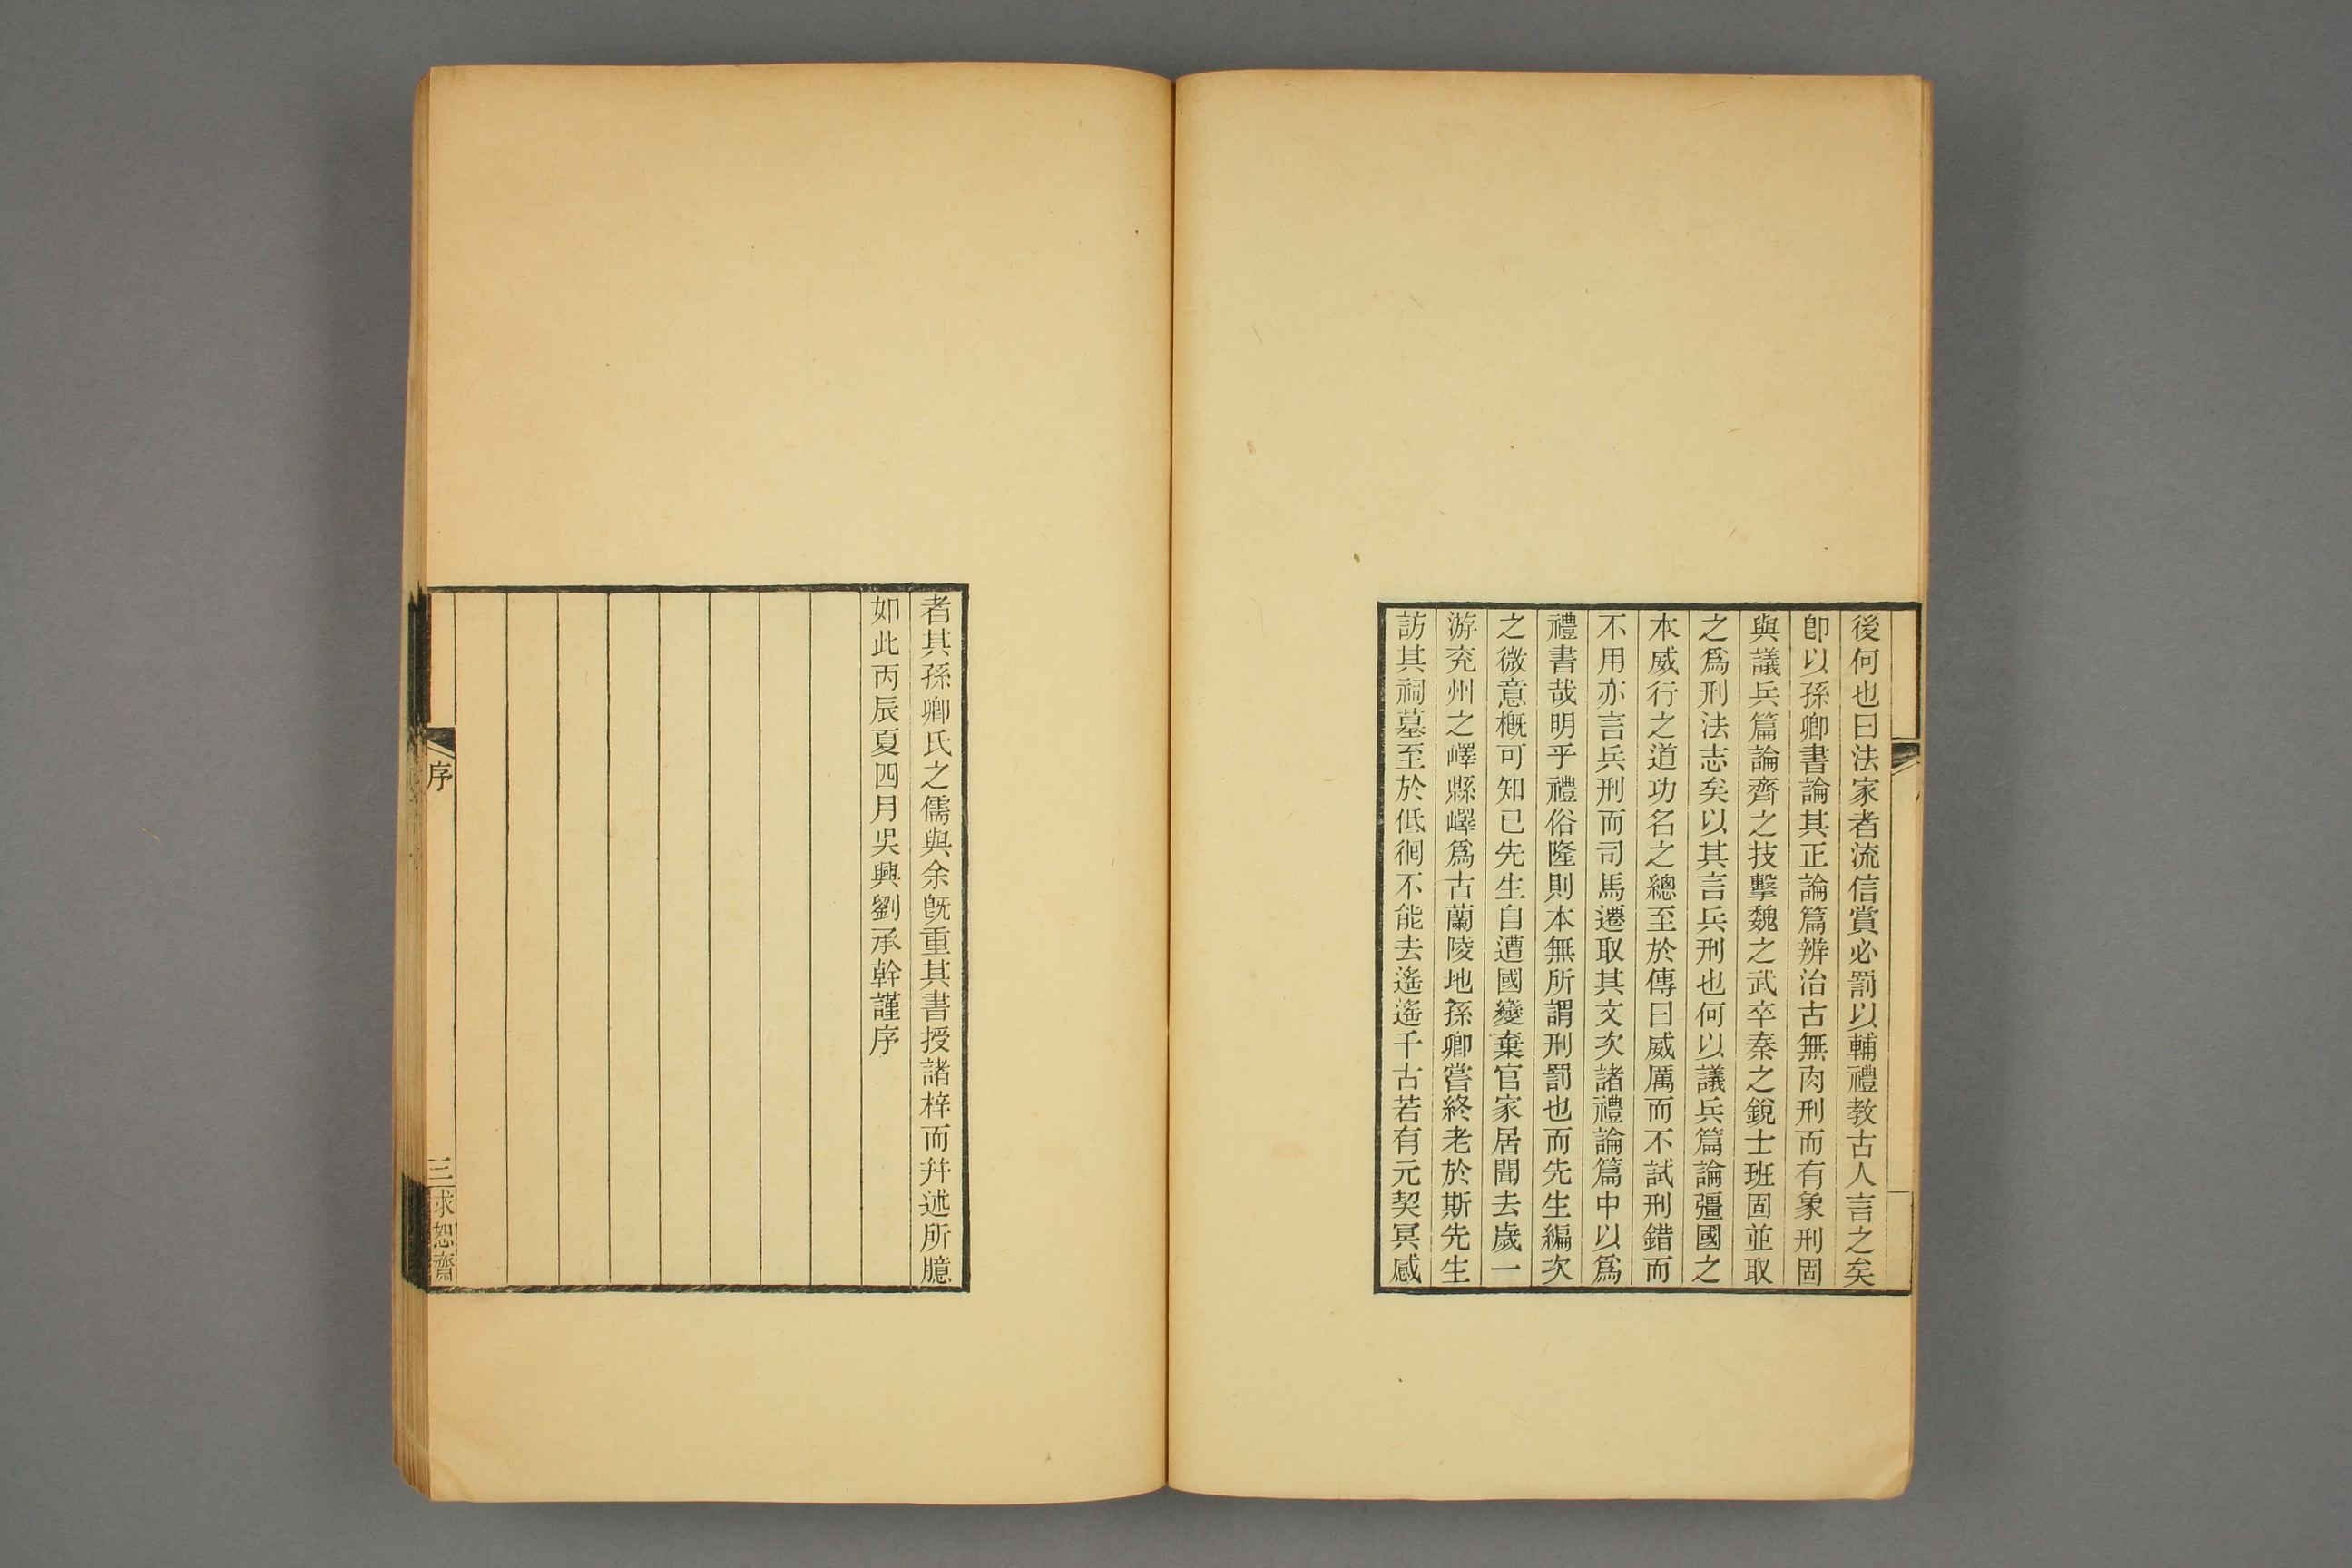 後何也曰法家者流信賞必罰以輔禮教古人言之矣
卽以孫卿書論其正論篇辨治古無肉刑而有象刑固
與議兵篇論齊之技擊魏之武卒秦之銳士班固並取
之爲刑法志矣以其言兵刑也何以議兵篇論彊國之
本威行之道功名之總至於傳曰威厲而不試刑錯而
不用亦言兵刑而司馬遷取其文次諸禮論篇中以爲
禮書哉明乎禮俗隆則本無所謂刑罰也而先生編次
之微意槪可知已先生自遭國變棄官家居聞去歲一
游兖州之嶧縣嶧爲古蘭陵地孫卿嘗終老於斯先生
訪其祠墓至於低徊不能去遙遙千古若有元契冥感
者其孫卿氏之儒與余旣重其書授諸梓而幷述所臆
如此丙辰夏四月吳興劉承幹謹序
序
三
求恕齋